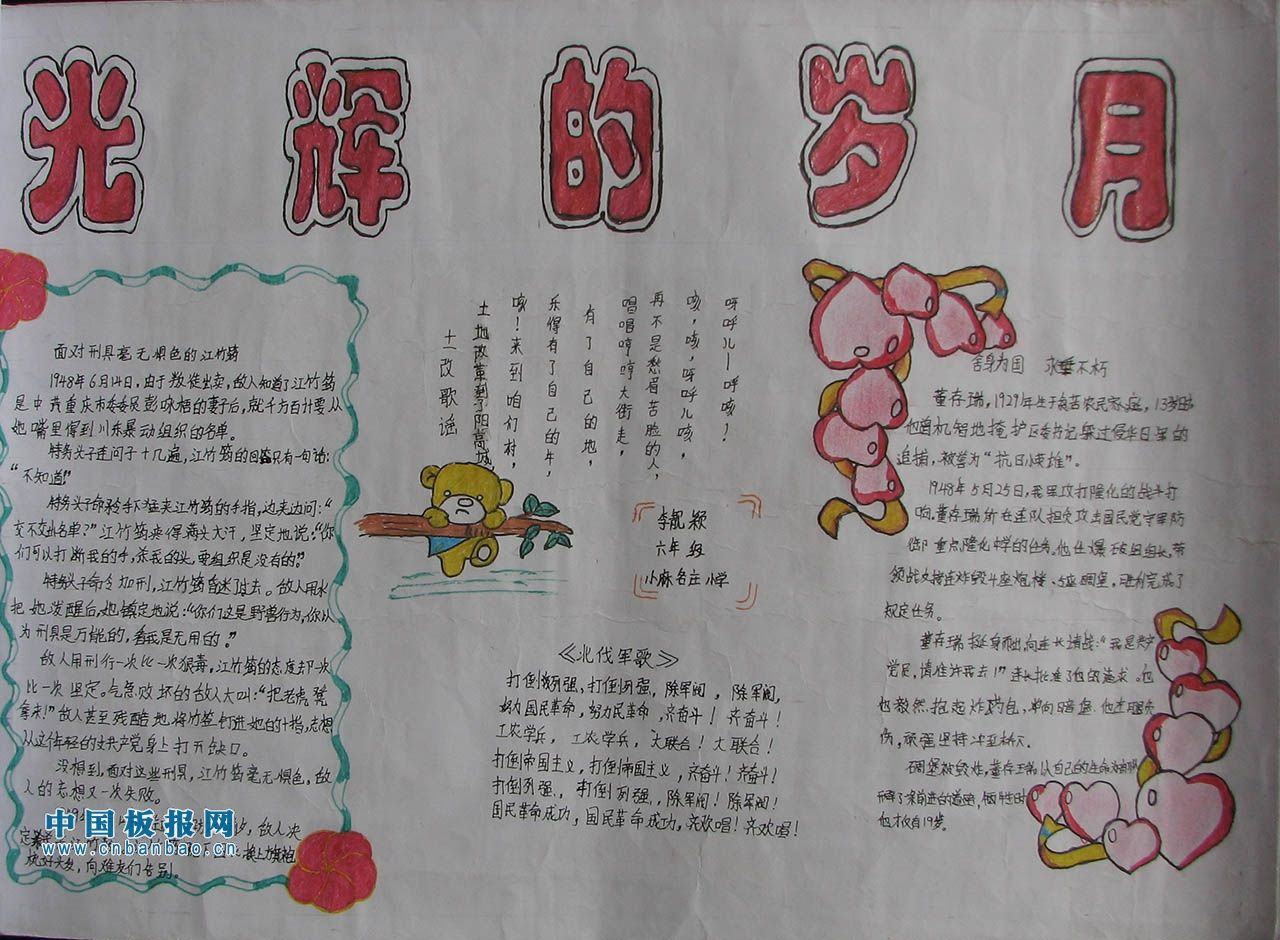 光辉的岁月
面对刑具毫无惧色的江竹筠
1948年6月14日,由于叛徒出卖,敌人知道了江竹筠
是中共重庆市委委员彭咏梧的妻子后,就千方百计要从
她嘴里得到川东暴动组织的名单。
特务头子连问了十几遍,江竹筠的回答只有一句话:
“不知道!”
特务头子命令手下猛夹江竹筠的手指,边夹边问:“
交不交出名单?”江竹筠疼得满头大汗,坚定地说:“你
们可以打断我的手,杀我的头,要组织是没有的。”
特务头子命令加刑,江竹筠昏迷过去。敌人用水
把她泼醒后,她镇定地说:“你们这是野兽行为,你认
为刑具是万能的,看我是无用的。”
敌人用刑一次比一次狠毒,江竹筠的态度却一次
比一次坚定。气急败坏的敌人大叫:“把老虎凳
拿来!”敌人甚至残酷地将竹签钉进她的十指,妄想
从这年轻的女共产党身上打开缺口。
没想到,面对这些刑具,江竹筠毫无惧色,敌
人的妄想又一次失败。
敌人决
换上旗袍
向难友们告别。
土改歌谣
土地改革到了阳高城,
咳!来到咱们村,
乐得有了自己的牛,
有了自己的地,
唱唱哼哼大街走,
再不是愁眉苦脸的人,
咳,咳,呀呼儿咳,
呀呼儿—呼咳!
李靓颖
六年级
小麻各庄小学
《北伐军歌》
打倒列强,打倒列强,除军阀,除军阀,
努力国民革命,努力民革命,齐奋斗!齐奋斗!
工农学兵,工农学兵,大联合!大联合!
打倒帝国主义,打倒帝国主义,齐奋斗!齐奋斗!
打倒列强,打倒列强,除军阀!除军阀!
国民革命成功,国民革命成功,齐欢唱!齐欢唱!
舍身为国 永垂不朽
董存瑞,1929年生于贫苦农民家庭,13岁时
他曾机智地掩护区委书记躲过侵华日军的
追捕,被誉为“抗日英雄”。
1948年5月25日,我军攻打隆化的战斗打
响。董存瑞所在连队担负攻击国民党守军防
御重点隆化中学的任务。他任爆破组组长,带
领战友接连炸毁4座炮楼、5座碉堡,胜利完成了
规定任务。
董存瑞挺身而出,向连长请战:“我是共产
党员,请准许我去!”连长批准了他的请求。他
毅然抱起炸药包,冲向暗堡。他左腿负
伤,顽强坚持冲至桥下。
碉堡被炸毁,董存瑞以自己的生命为部队
开辟了前进的道路,牺牲时
他才仅有19岁。
中国板报网
www.cnbanbao.cn